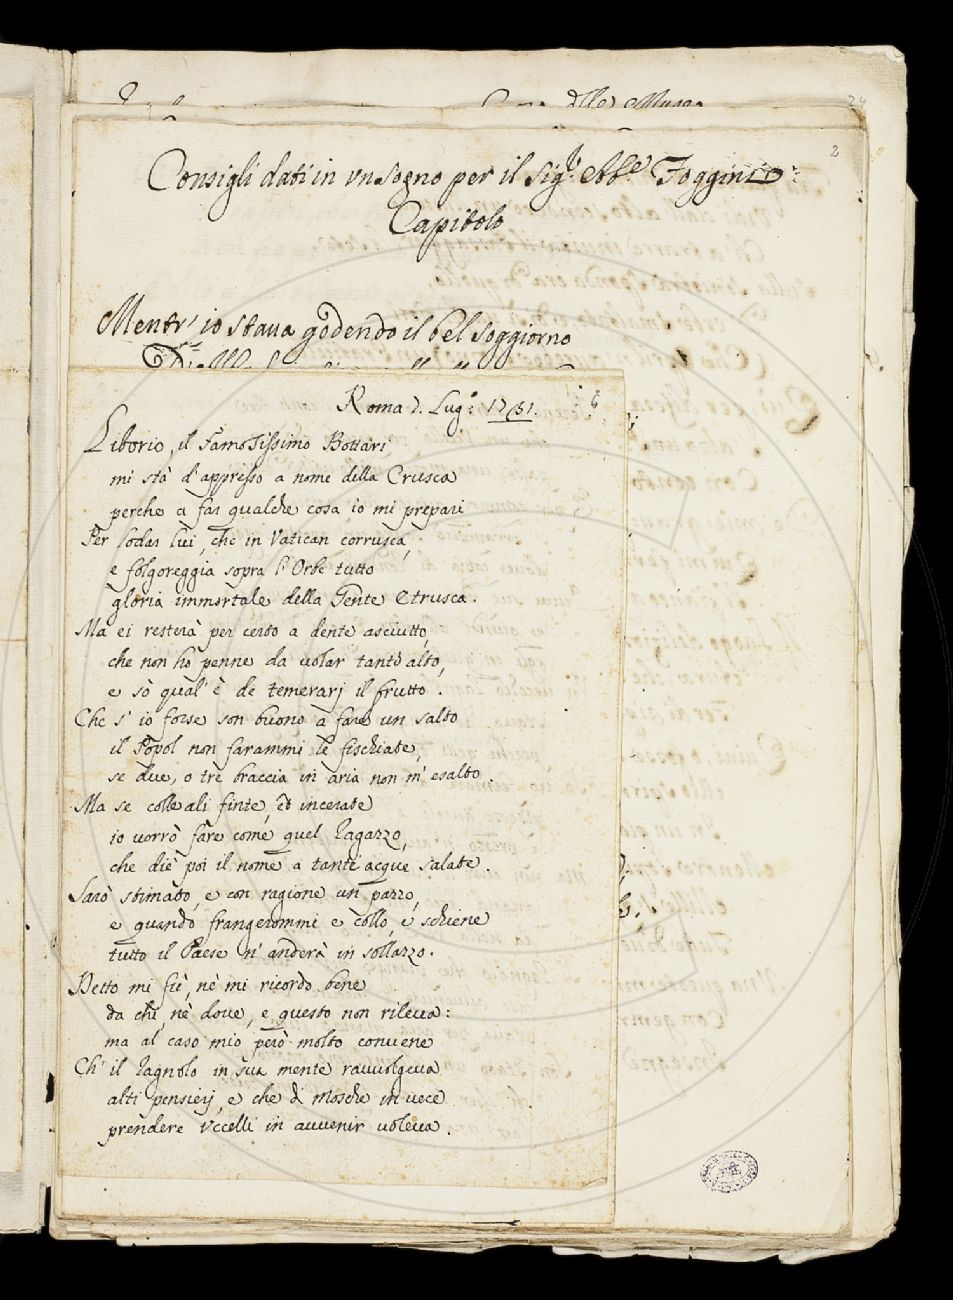 24
2
Consigli dati in un Sogno per il Sig.r Ab.e Foggini
Capitolo
Mentr' io staua godendo il bel soggiorno
Roma 7. Lug.o 1751. 6
Liborio, il Famosissimo Bottari
mi stà d'appresso a nome della Crusca
perche a far qualche cosa io mi prepari
Per lodar lui, che in Vatican corrusca,
e folgoreggia sopra l'Orbe tutto
gloria immortale della Gente Etrusca.
Ma ei resterà per certo a dente asciutto,
che non ho penne da volar tant'alto,
e sò qual' è de temerarj il frutto.
Che s' io forse son buono a fare un salto
il Popol non farammi le fischiate,
se due, o tre braccia in aria non m' esalto.
Ma se colle ali finte, et incerate
io vorrò fare come quel Ragazzo,
che diè poi il nome a tante acque salate.
Sarò stimato, e con ragione un pazzo,
e quando frangerommi e collo, e schiene
tutto il Paese n' anderà in sollazzo.
Detto mi fù, nè mi ricordo bene
da chi, nè dove, e questo non rileva:
ma al caso mio però molto conviene
Ch' il Ragnolo in sua mente ravvolgeva
alti pensieri, e che di mosche in vece
prendere Uccelli in avvenir voleva.